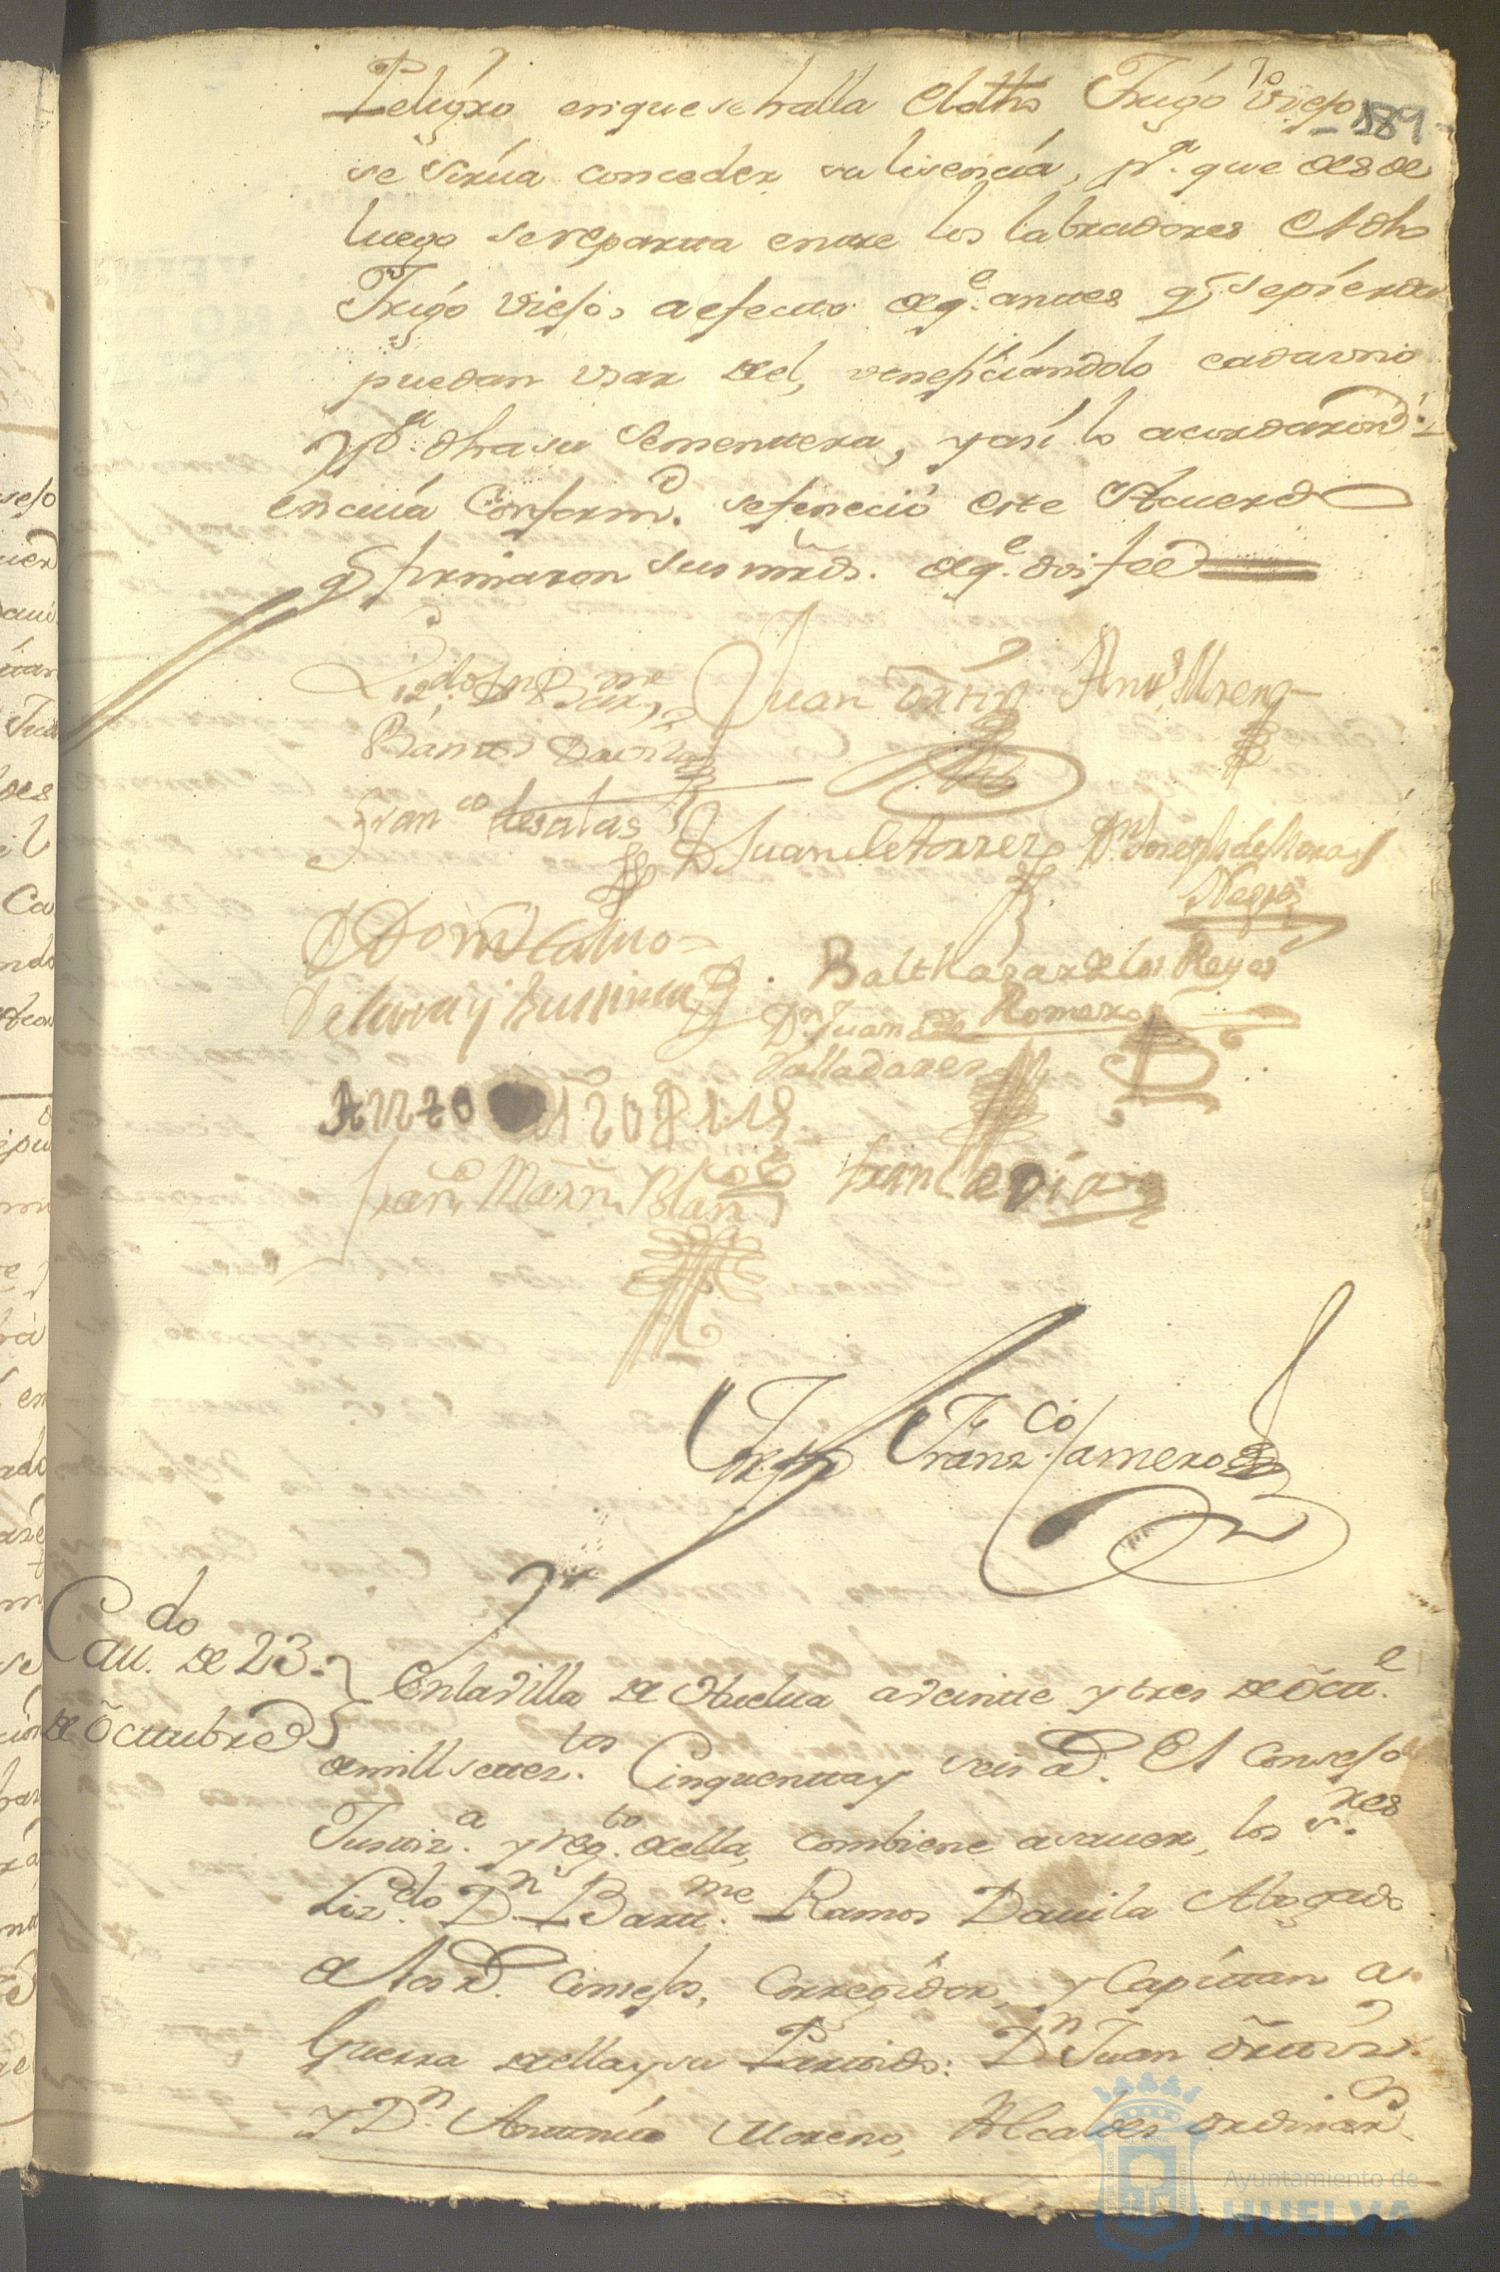 189
Peligro enquesehalla el dho Trigo viejo
se sirua conceder su lisencia, pª. que desde
luego sereparta entre los labradores el dho
Trigo viejo, a efecto deq.e antes q. sepierda
puedan usar del, veneficiándolo cadauno
pª. dha su sementera, y asi lo acordaron
encuia Conform.d sefenecio este Acuerdo
q. firmaron sus mrds. deq.e doi fee
Lizdo. Dn Bar.me
Ramos Davila
Juan Ortiz
Antº Moreno
Franco de salas
D Juan de torres
Dn Joseph de Mora
Negro
D Domº Calvo
Balthasar de los Reyes
Romero
Dn Juan de
Valladares
Franco Martn Blanco
Francº Diaz
Franzco. Camero
Caudo. de 23
de Octtubre
Enlavilla de Huelua aveintte y tres de Octt.e
demill settez.tos Cinquentta y seis a. El Consejo
Justiz.ª y reg.to della, combiene asauer, los s.res
Liz.do Dn Bartt.me Ramos Dauila Abogado
de los R. Consejos, Corregidor, y Capittan a
Guerra dellaysu Parttido: Dn Juan Orttiz
y Dn. Anttonio Moreno, Alcaldes ordinar.os
Ayuntamiento de
HUELVA